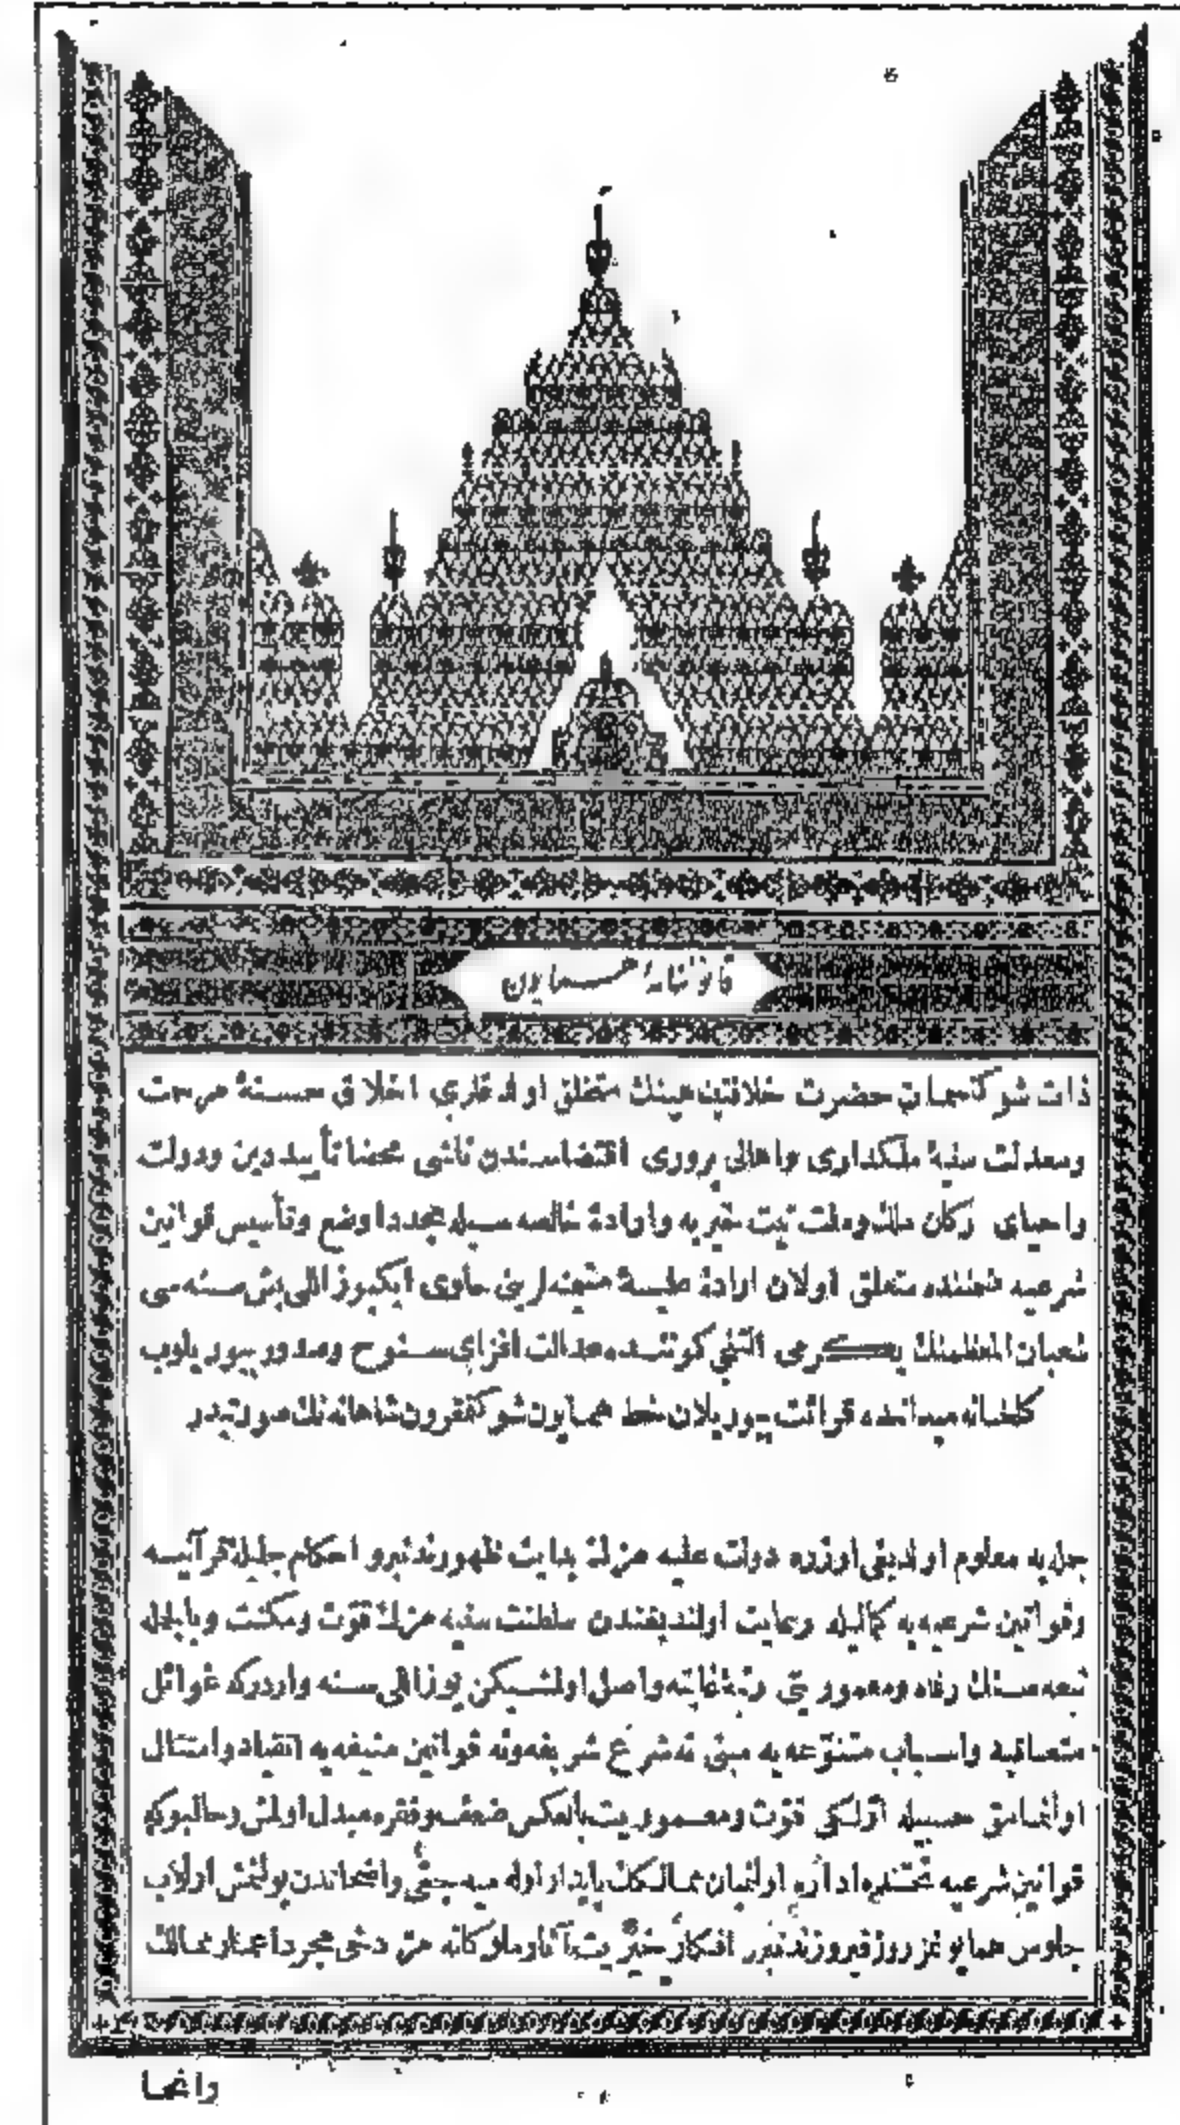 قانوننامهٔ همایون
ذات شوکتسمات حضرت خلافتپناهینك متخلق اولدقلری اخلاق حسنهٔ مرحمت
ومعدلت سنیهٔ ملکداری واهالی پروری اقتضاسندن ناشی محضا تأیید دین ودولت
واحیای ارکان ملك وملت نیت خیریه وارادهٔ خالصه سیله مجددا وضع وتأسیس قوانین
شرعیه ضمننده متعلق اولان ارادهٔ علیهٔ متیمنه لرینی حاوی ایکیوز اللی بش سنه سی
شعبان المعظمنك یکرمی التنجی کوننده معدالت افزای سنوح وصدور بیوریلوب
کلخانه میداننده قرائت بیوریلان خط همایون شوکتمقرون شاهانه نك صورتیدر
جمله یه معلوم اولدیغی اوزره دولت علیه مزك بدایت ظهورندنبرو احکام جلیلهٔ قرآنیه
وقوانین شرعیه یه کمالیله رعایت اولندیغندن سلطنت سنیه مزك قوت ومکنت وبالجمله
تبعه سنك رفاه ومعموریتی رتبهٔ غایته واصل اولمشیکن یوز اللی سنه واردرکه غوائل
متعاقبه واسباب متنوعه یه مبنی نه شرع شریفه ونه قوانین منیفه یه انقیاد وامتثال
اولنمامق حسبیله اولکی قوت ومعموریت بالعکس ضعف وفقره مبدل اولمش وحالبوکه
قوانین شرعیه تحتنده اداره اولنمیان ممالکك پایدار اوله میه جغی واضحاتدن بولنمش اولوب
جلوس همایونمز روز فیروزندنبرو افکار خیریت آثار ملوکانه مز دخی مجرد اعمار ممالك
وانحا